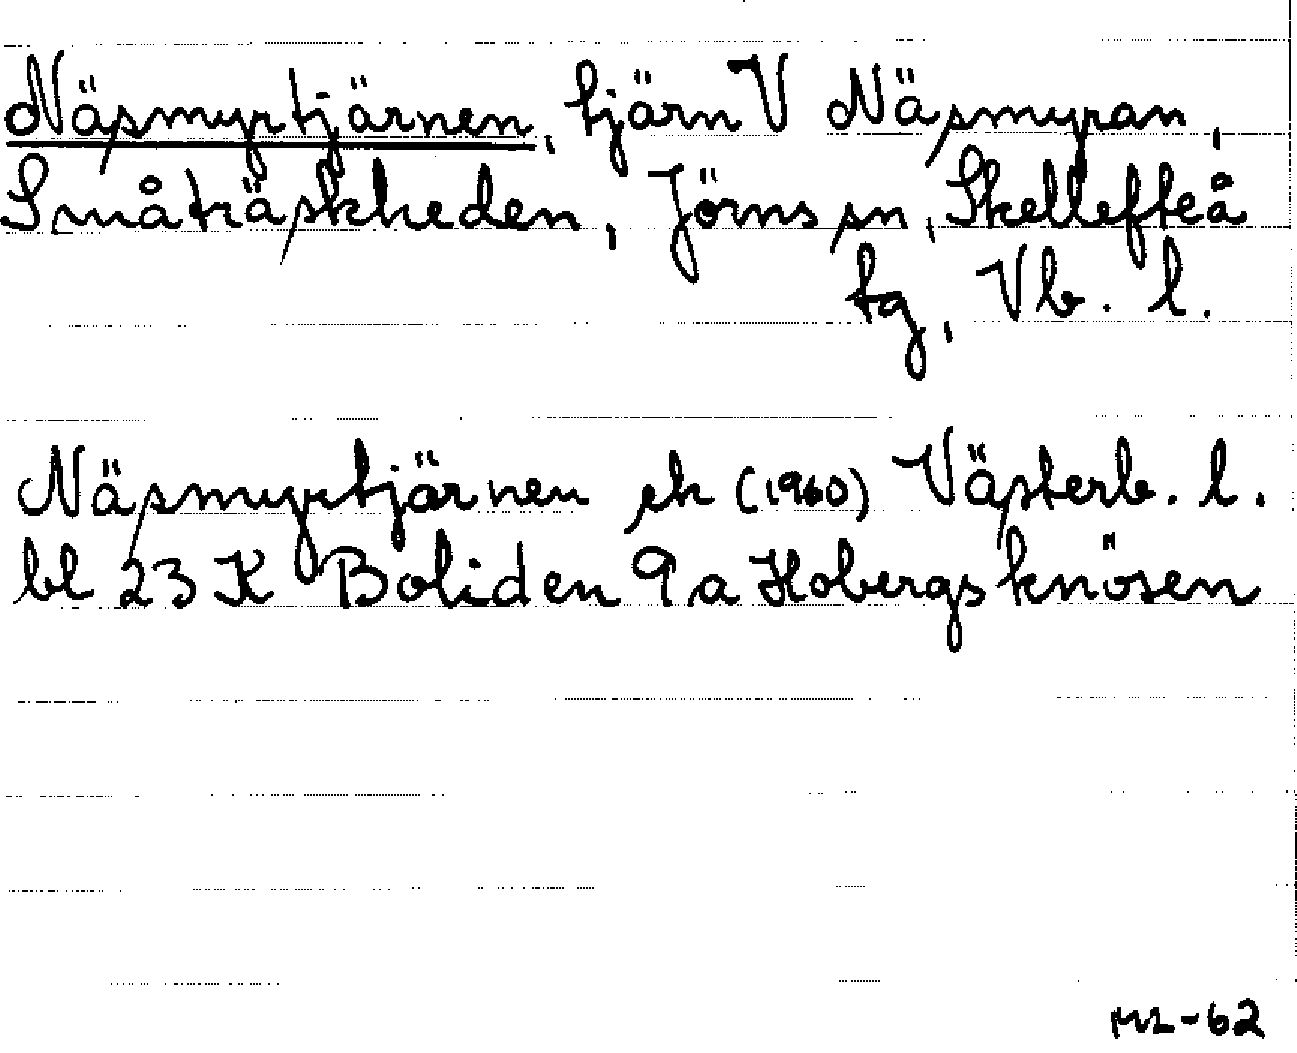 Näsmyrtjärnen, tjärn V Näsmyran,
Småträskheden, Jörns sn, Skellefteå
tg, Vb. l.
Näsmyrtjärnen ek (1960) Västerb. l.
bl 23 K Boliden 9 a Hobergsknösen
ML-62